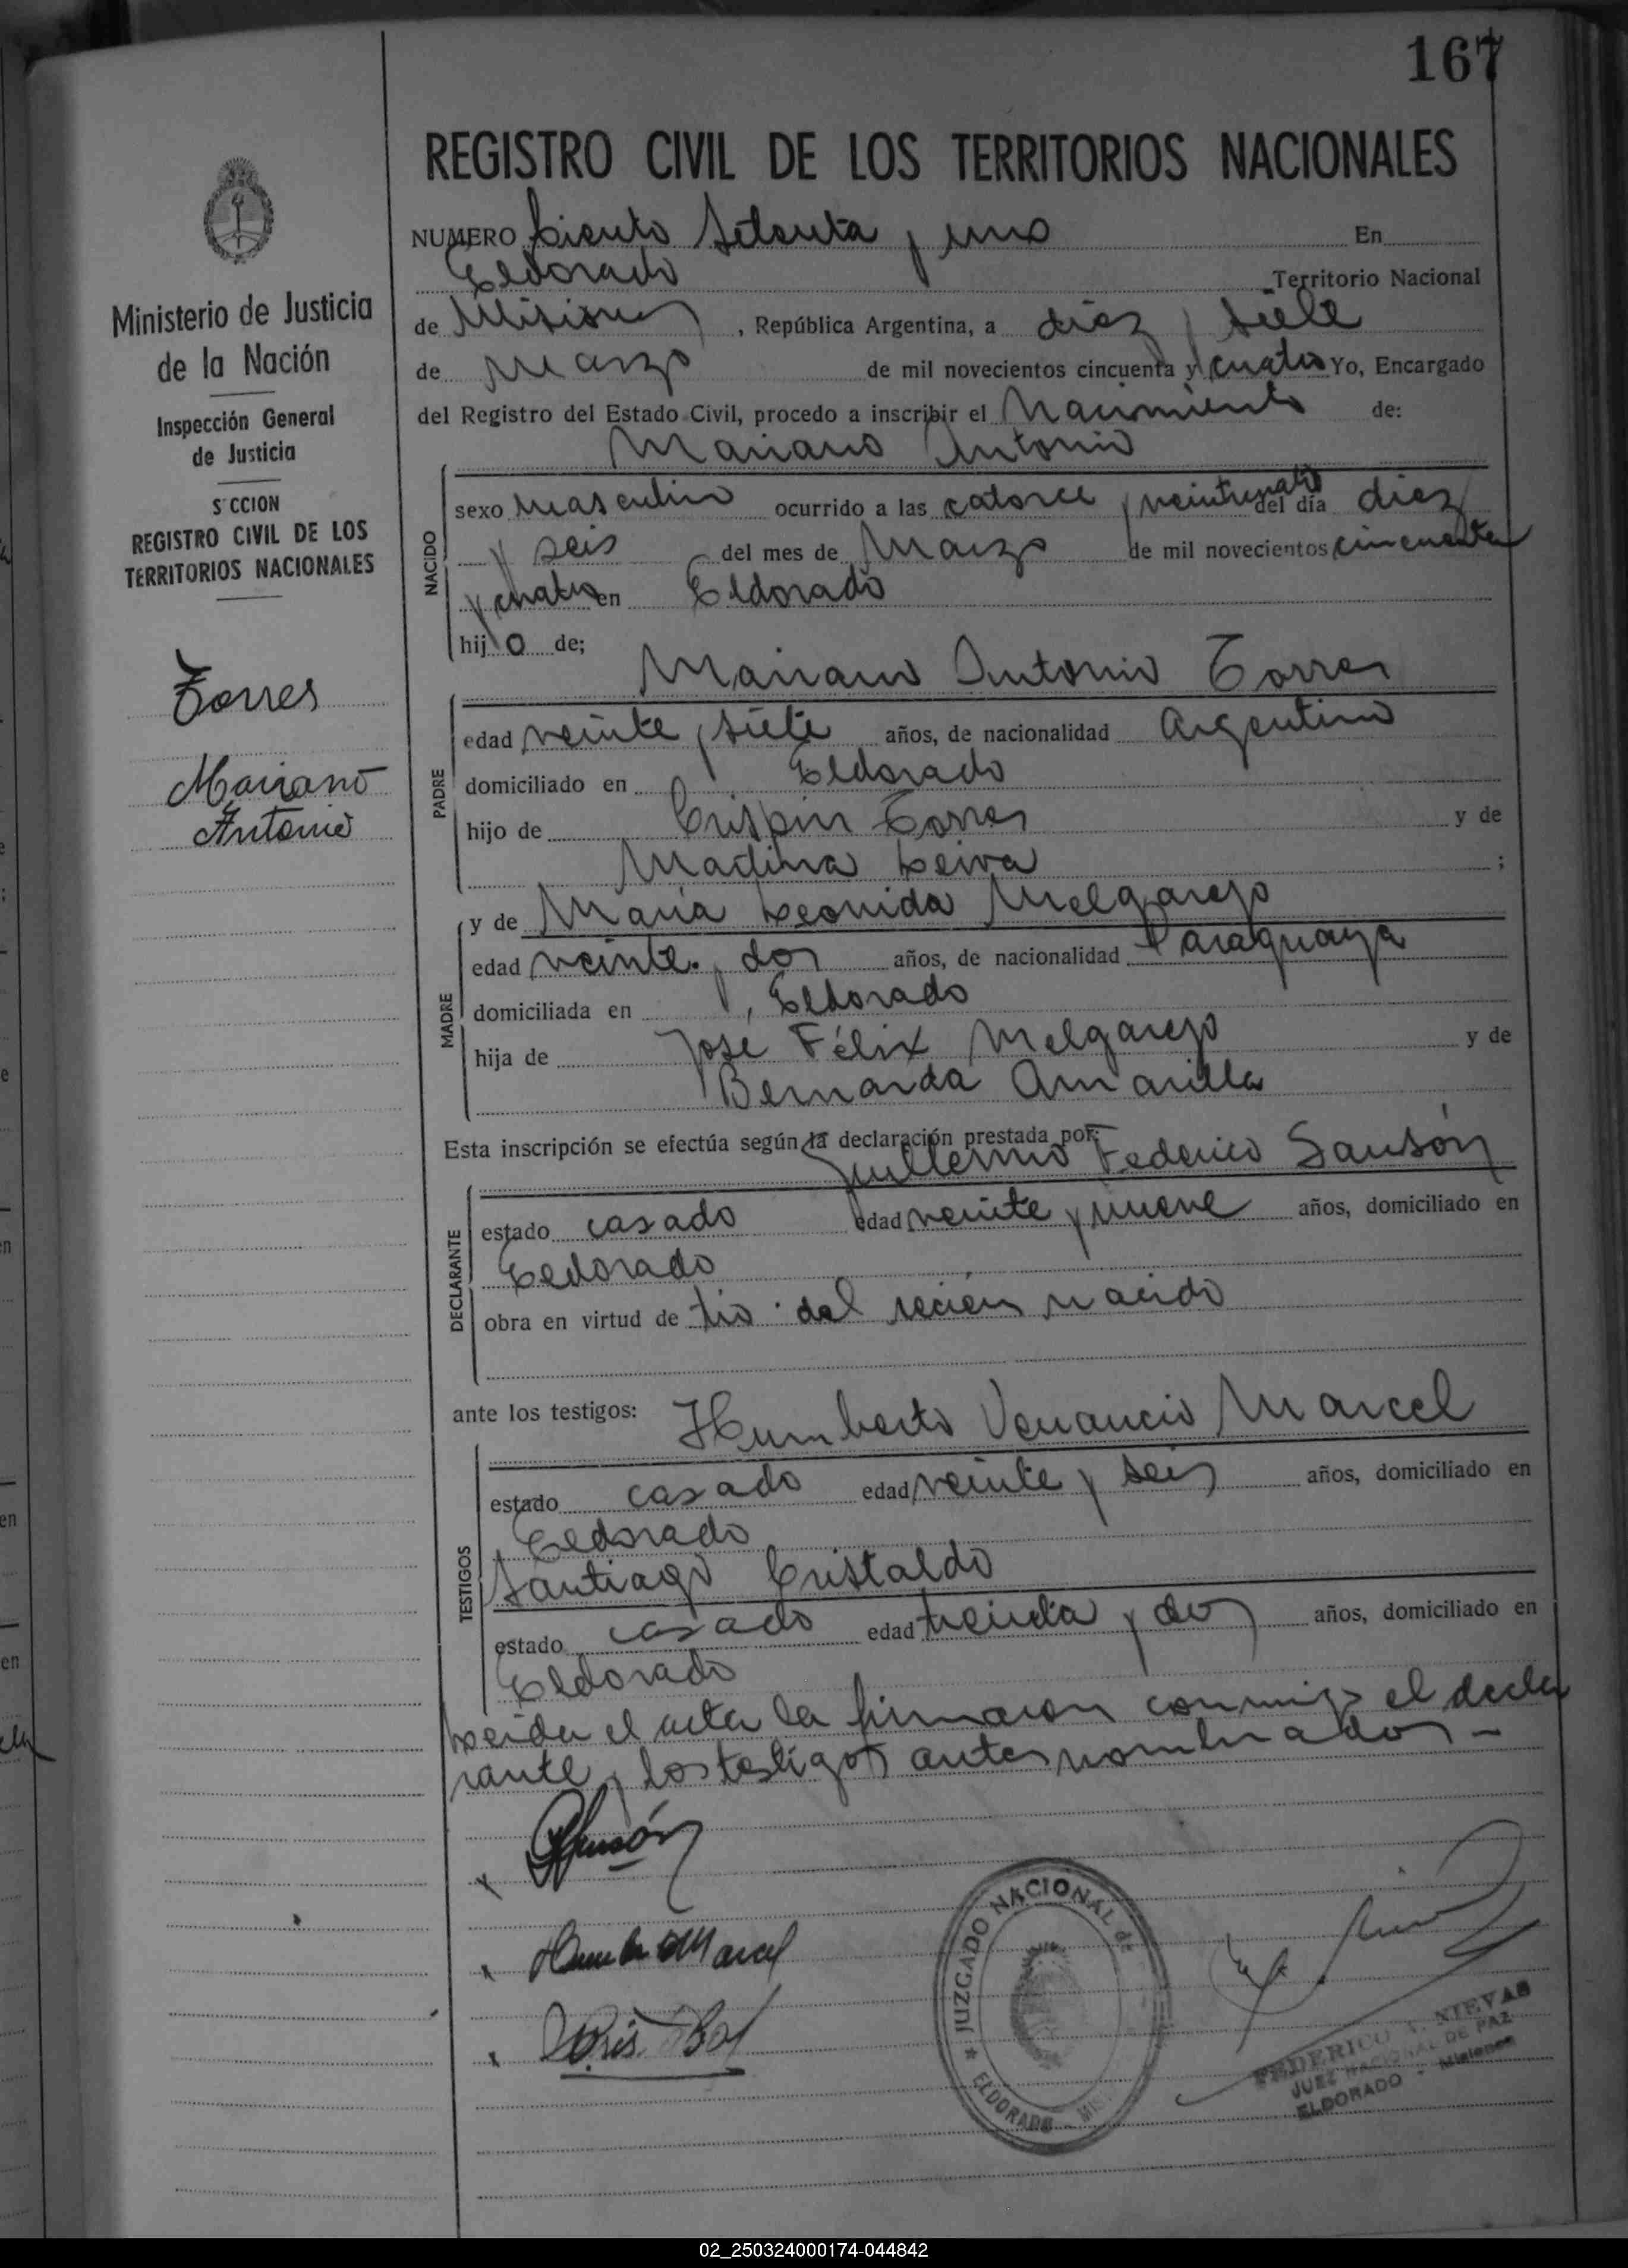 167
REGISTRO CIVIL DE LOS TERRITORIOS NACIONALES
Ministerio de Justicia
de la Nación
Inspección General
de Justicia
S CCION
REGISTRO CIVIL DE LOS
TERRITORIOS NACIONALES
Torres
Mariano
Antonio
NUMERO Ciento Setenta y uno En
Eldorado Territorio Nacional
de Misiones, República Argentina, a diez y siete
de Marzo de mil novecientos cincuenta y cuatro Yo, Encargado
del Registro del Estado Civil, procedo a inscribir el Nacimiento de:
Mariano Antonio
NACIDO
sexo masculino ocurrido a las catorce y veinticuatro del día diez
y seis del mes de Marzo de mil novecientos cincuenta
y cuatro en Eldorado
hijo de;
Mariano Antonio Torres
PADRE
edad veinte y siete años, de nacionalidad Argentino
domiciliado en Eldorado
hijo de Crispin Torres y de
Leiva ;
y de María Leonida Melgarejo
MADRE
edad veinte y dos años, de nacionalidad Paraguaya
domiciliada en Eldorado
hija de José Félix Melgarejo y de
Bernarda Amarilla
Esta inscripción se efectúa según la declaración prestada por:
Guillermo Federico Sansón
DECLARANTE
estado casado edad veinte y nueve años, domiciliado en
Eldorado
obra en virtud de tio del recién nacido
ante los testigos: Humberto Venancio Marcel
TESTIGOS
estado casado edad veinte y seis años, domiciliado en
Eldorado
Santiago Cristaldo
estado casado edad treinta y dos años, domiciliado en
Eldorado
Leida el acta la firmaron conmigo el decla
rante y los testigos antes nombrados -
Sansón
Marcel
JUZGADO NACIONAL de
ELDORADO - MIS.
FEDERICO NIEVAS
JUEZ NACIONAL DE PAZ
ELDORADO - Misiones
02_250324000174-044842